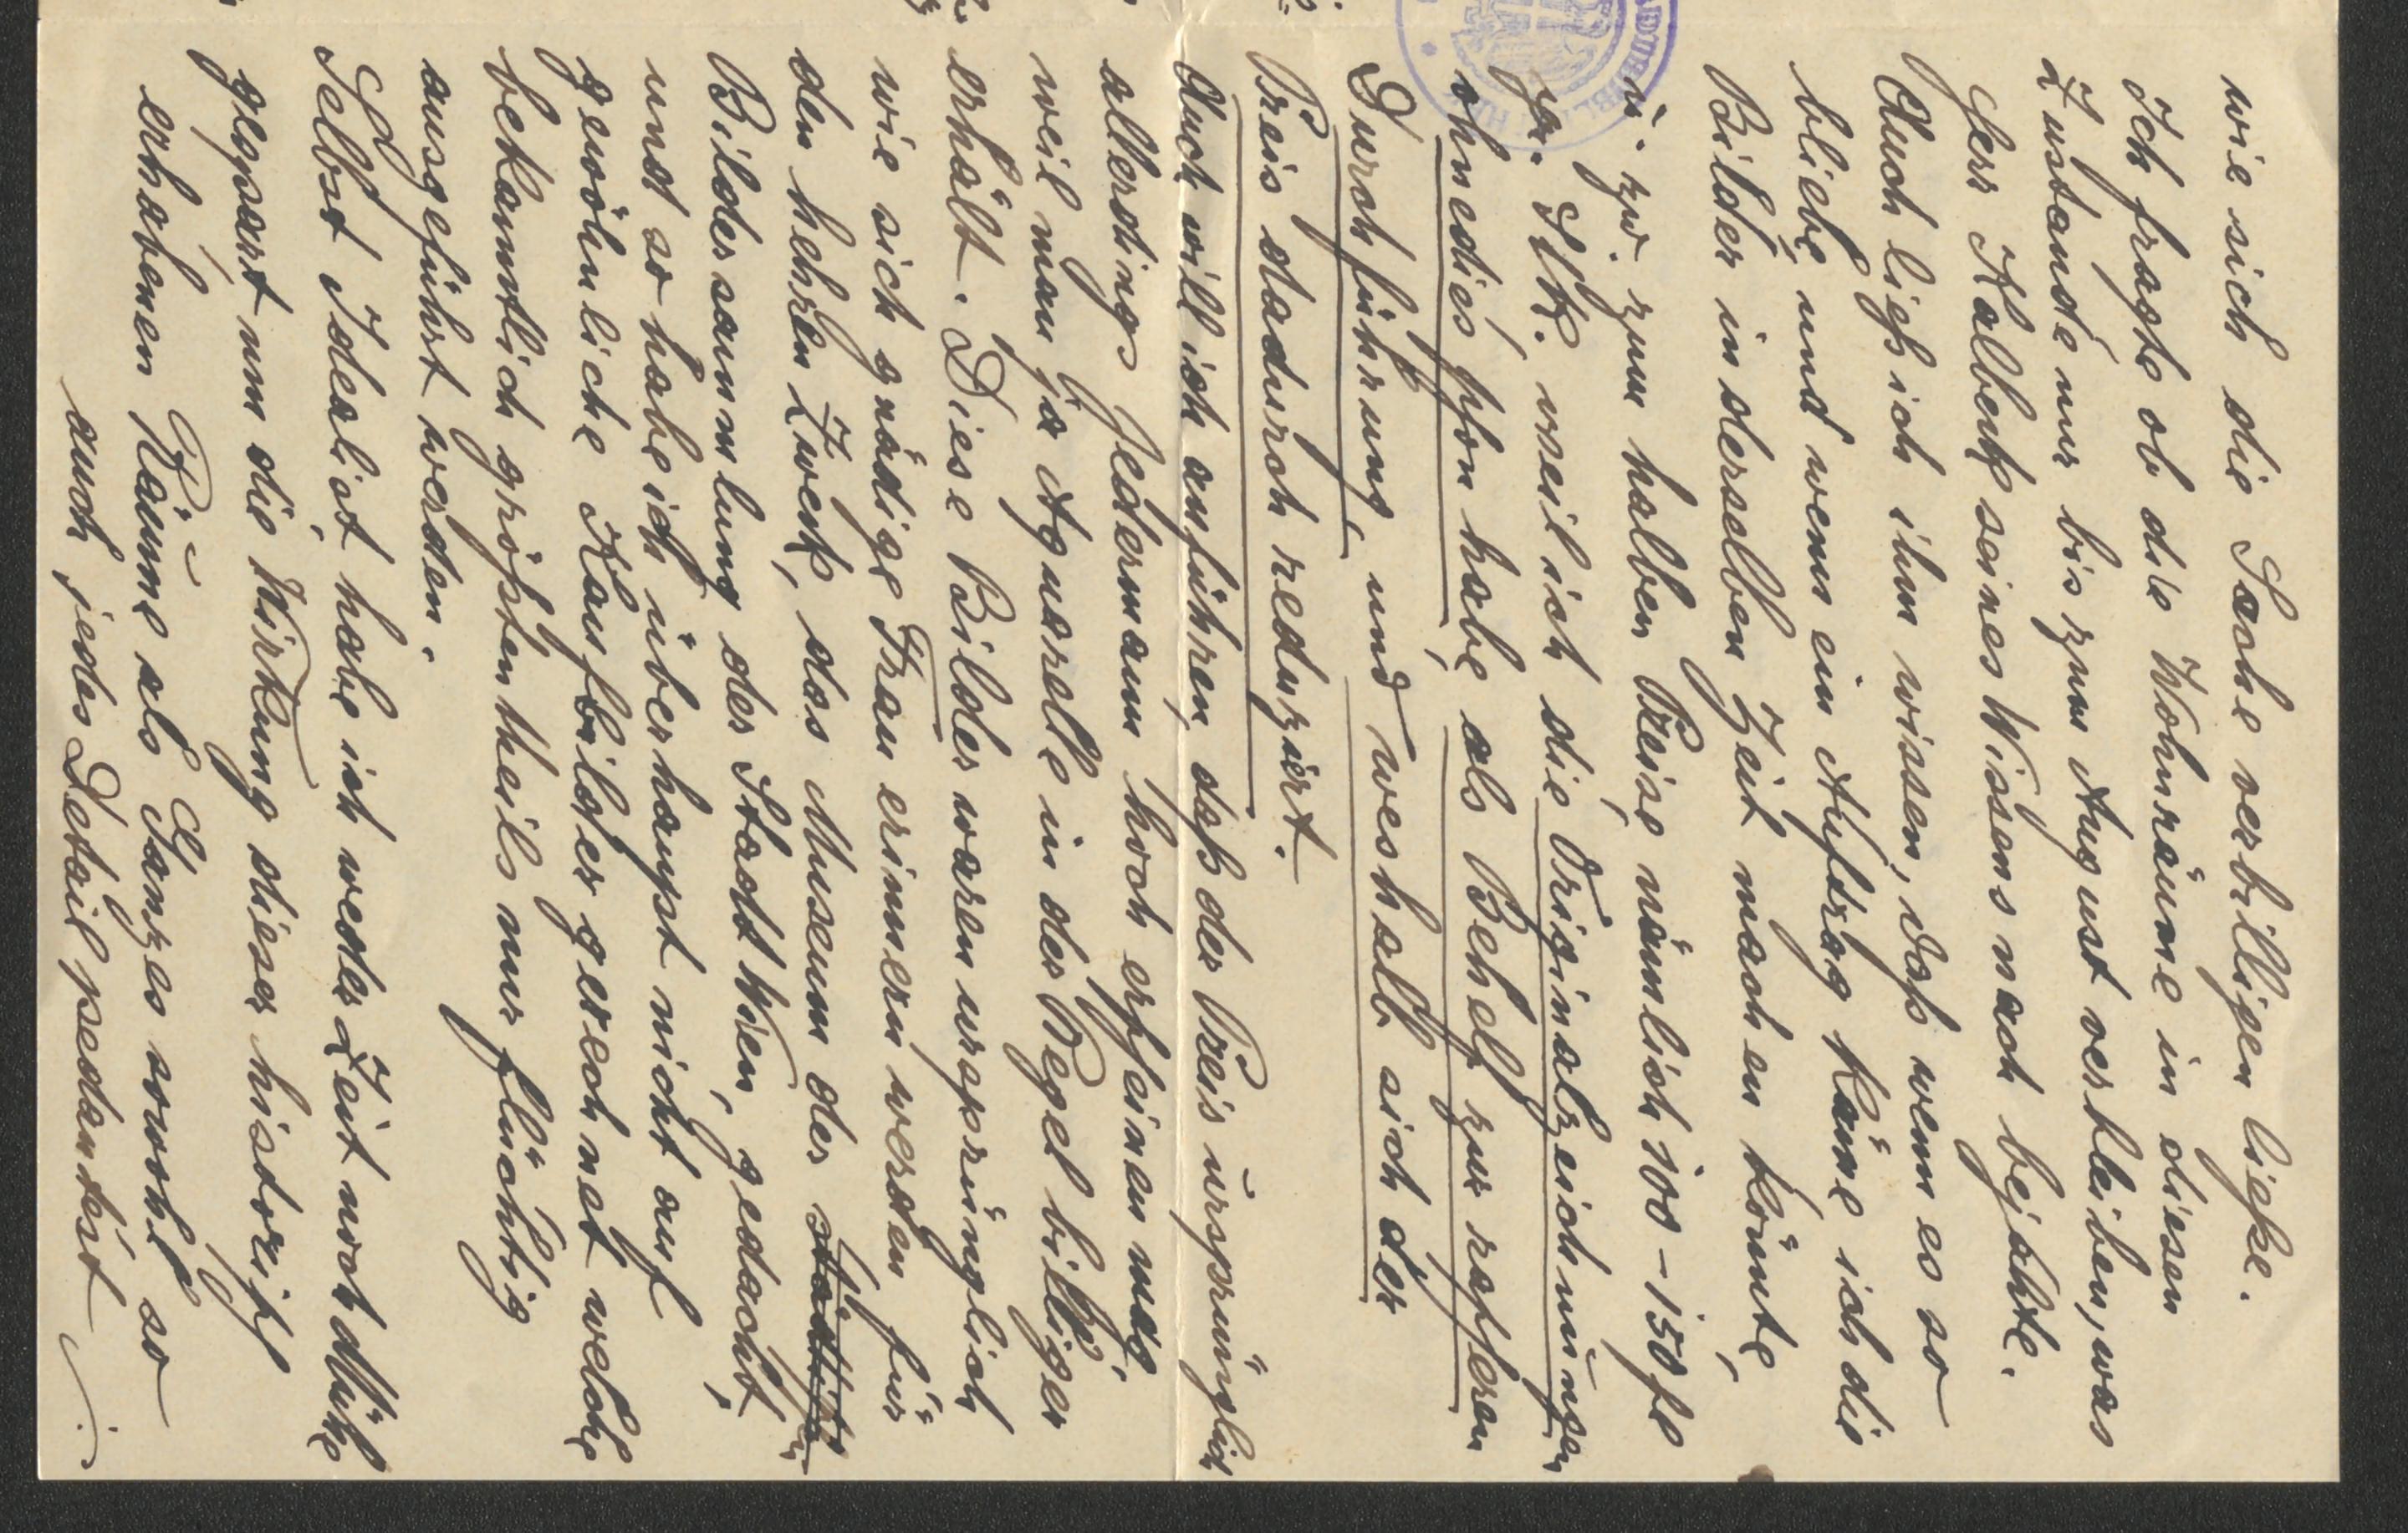 wie sich die Sache verbilligen ließe.
Ich fragte ob die Wohnräume in diesen
Zustande nur bis zum August verbleiben, was
Herr Kalbeck seines Wissens nach bejahte.
Auch ließ ich ihm wissen, daß wenn es so
bliebe und wenn ein Auftrag käme ich die
Bilder in derselben Zeit machen könnte,
u. zw. zum halben Preise nämlich 100-150 fl
pr. Stk. weil ich die Originalzeichnungen
ohnedies schon habe als Behelf zur rascheren
Durchführung und weshalb sich der
Preis dadurch reduzirt.
Auch will ich anführen, daß der Preis ursprünglich
allerdings Jedermann hoch erscheinen mag,
weil man ja Aquarelle in der Regel billiger
erhält. Diese Bilder waren ursprünglich
wie sich gnädige Frau erinnern werden für
den hehren Zweck, das Museum der städtischen
Bildersammlung der Stadt Wien, gedacht,
und so habe ich überhaupt nicht auf
gewöhnliche Kaufbilder gerechnet welche
bekanntlich größtentheils nur flüchtig
ausgeführt werden.
Selbst Idealist habe ich weder Zeit noch Mühe
gespart um die Wirkung dieser historisch
erhabenen Räume als Ganzes sowohl so
auch jedes Detail pedantest